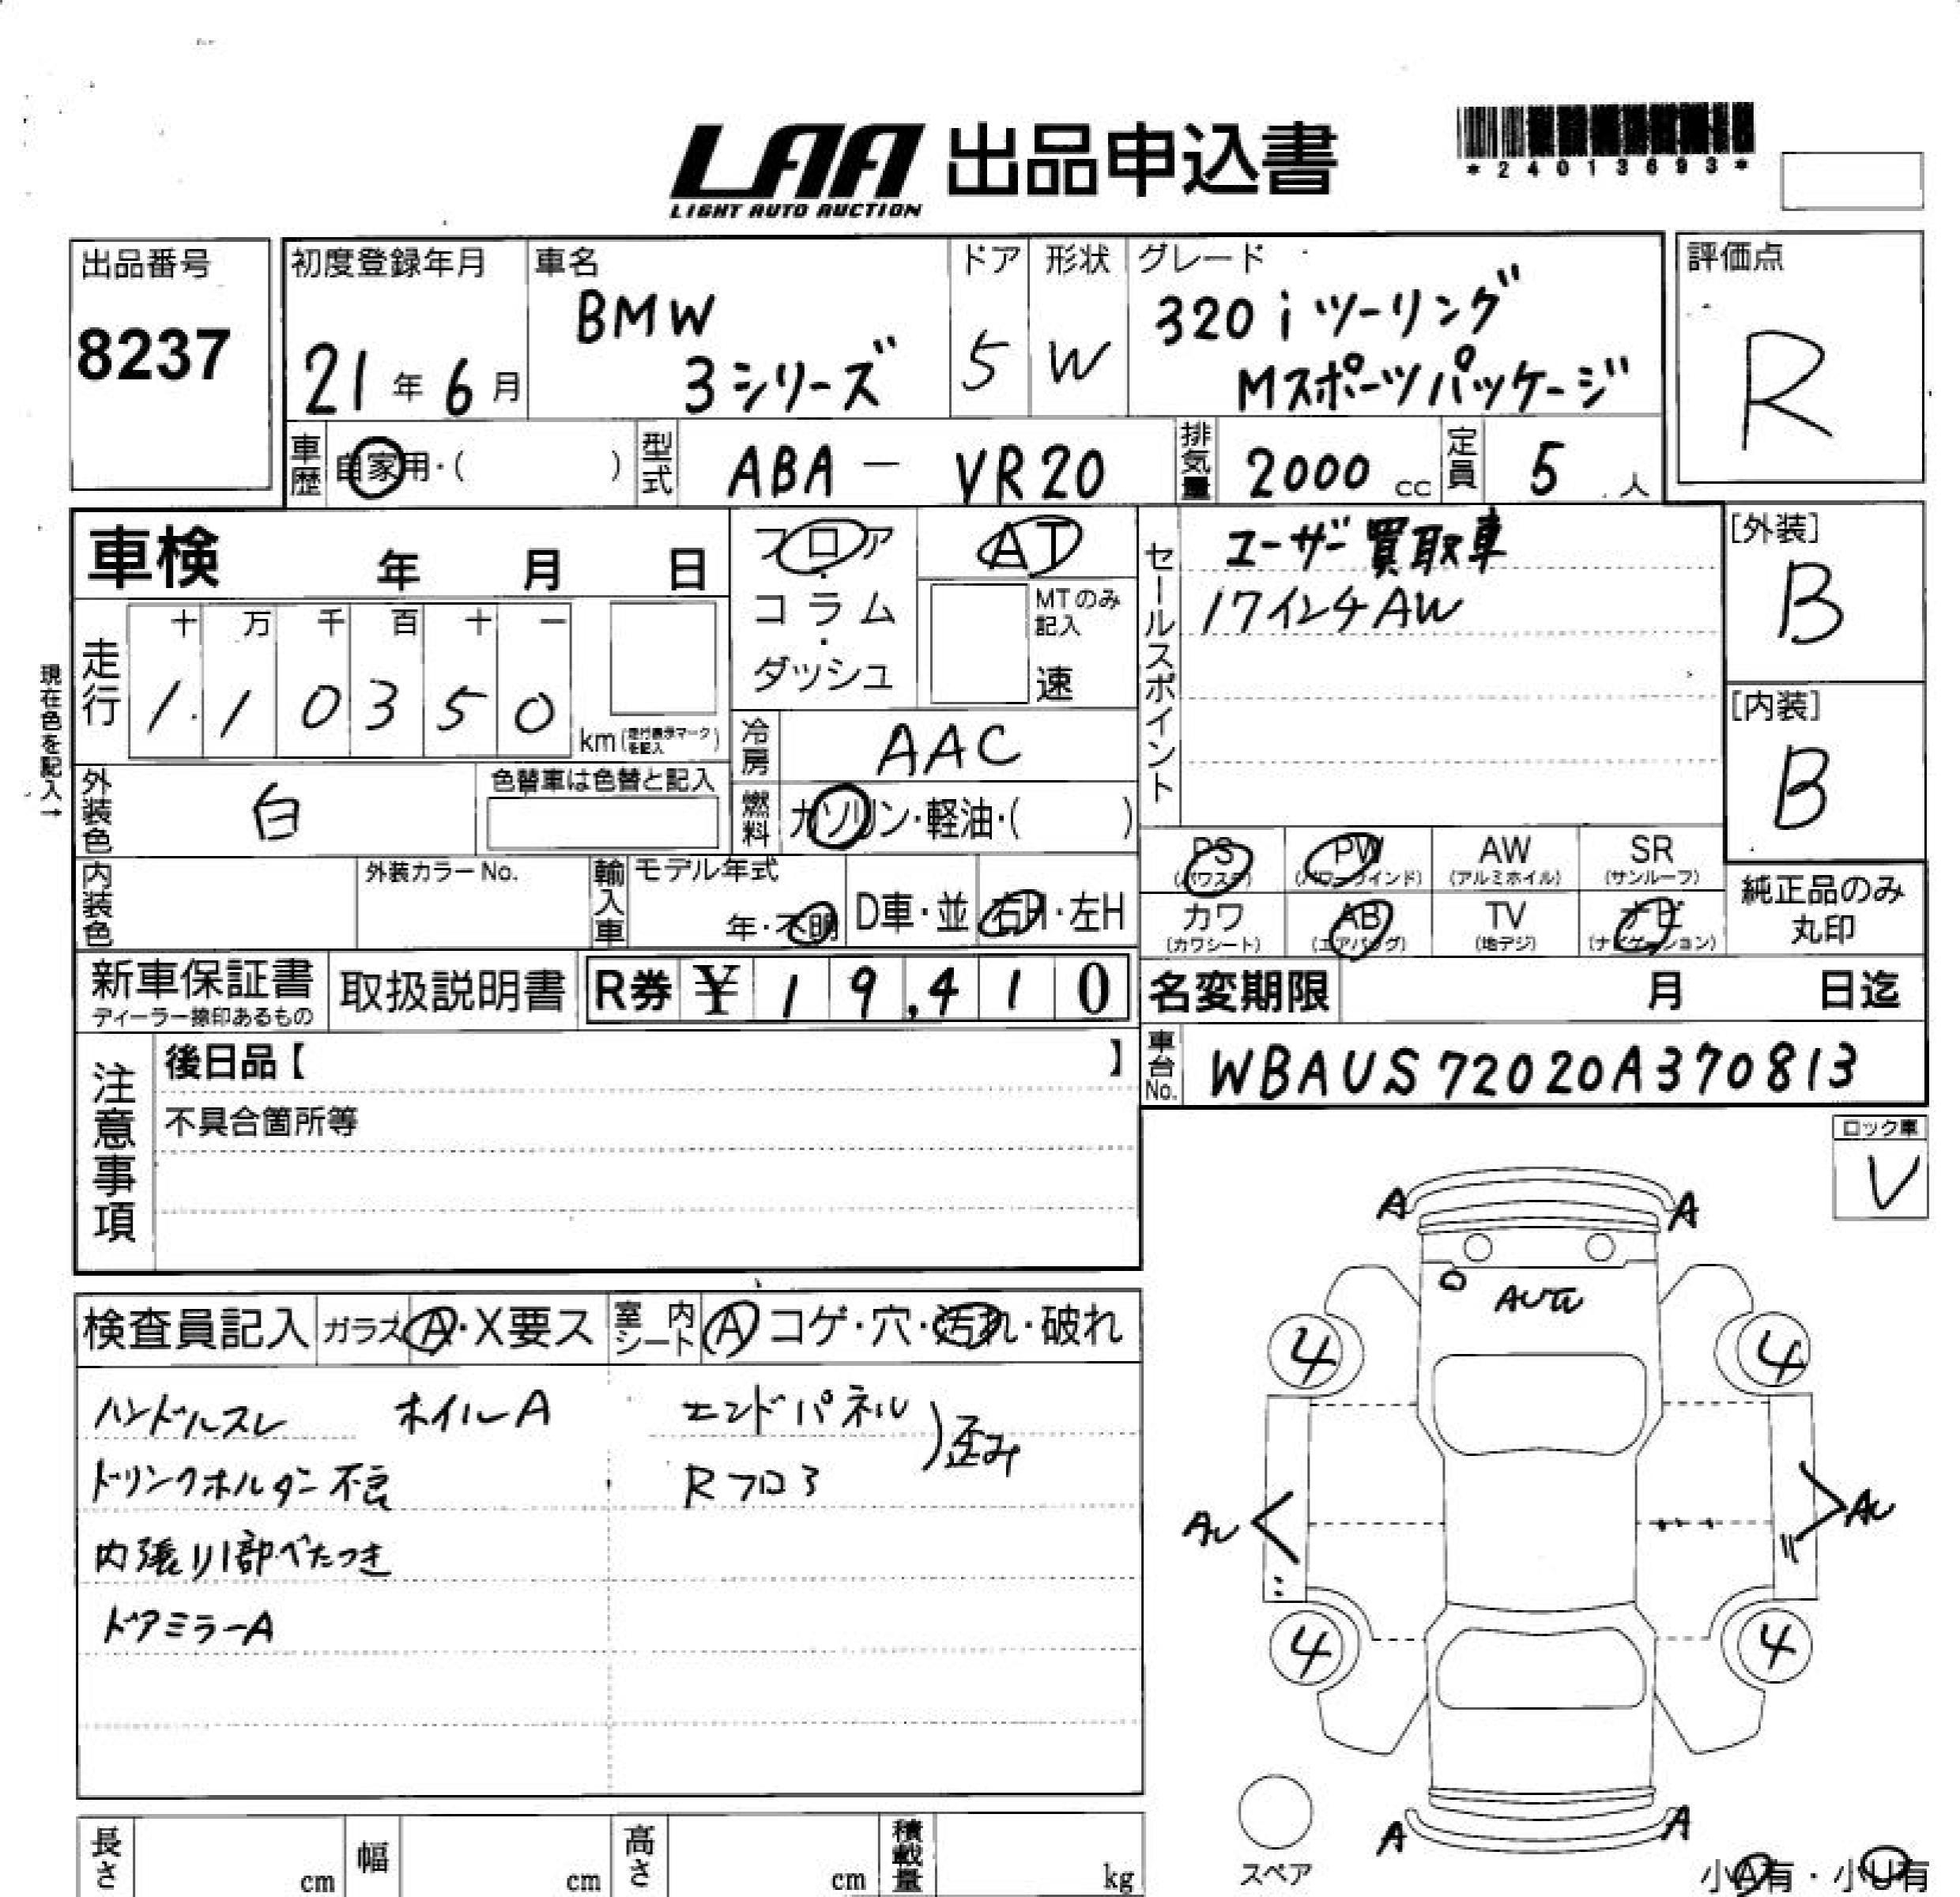 LAA 出品申込書
LIGHT AUTO AUCTION
*24013693*
出品番号
8237
初度登録年月
21年6月
車名
BMW
3シリーズ
ドア
5
形状
W
グレード
320iツーリング
Mスポーツパッケージ
評価点
R
車歴
自家用・( )
型式
ABA - VR20
排気量
2000 cc
定員
5 人
車検 年 月 日
フロア・コラム・ダッシュ
AT
MTのみ記入
速
セールスポイント
ユーザー買取車
17インチAW
[外装]
B
[内装]
B
現在色を記入→
走行
十 万 千 百 十 一
1 1 0 3 5 0
km(走行表示マークを記入)
冷房
AAC
外装色
白
色替車は色替と記入
燃料
ガソリン・軽油・( )
PS (パワステ)
PW (パワーウインド)
AW (アルミホイル)
SR (サンルーフ)
カワ (カワシート)
AB (エアバッグ)
TV (地デジ)
ナビ (ナビゲーション)
純正品のみ丸印
内装色
外装カラーNo.
輸入車
モデル年式
年・不明
D車・並
右H・左H
新車保証書
ディーラー捺印あるもの
取扱説明書
R券 ¥ 19,410
名変期限 月 日迄
車台No.
WBAUS72020A370813
注意事項
後日品【 】
不具合箇所等
ロック車
V
検査員記入
ガラス A・X要ス
室内シート
A コゲ・穴・汚れ・破れ
ハンドルスレ ホイルA
エンドパネル
Rフロ3
)歪み
ドリンクホルダー不良
内張り1部べたつき
ドアミラーA
A A
4 4
4 4
A A
スペア
小A有・小U有
長さ cm
幅 cm
高さ cm
積載量 kg